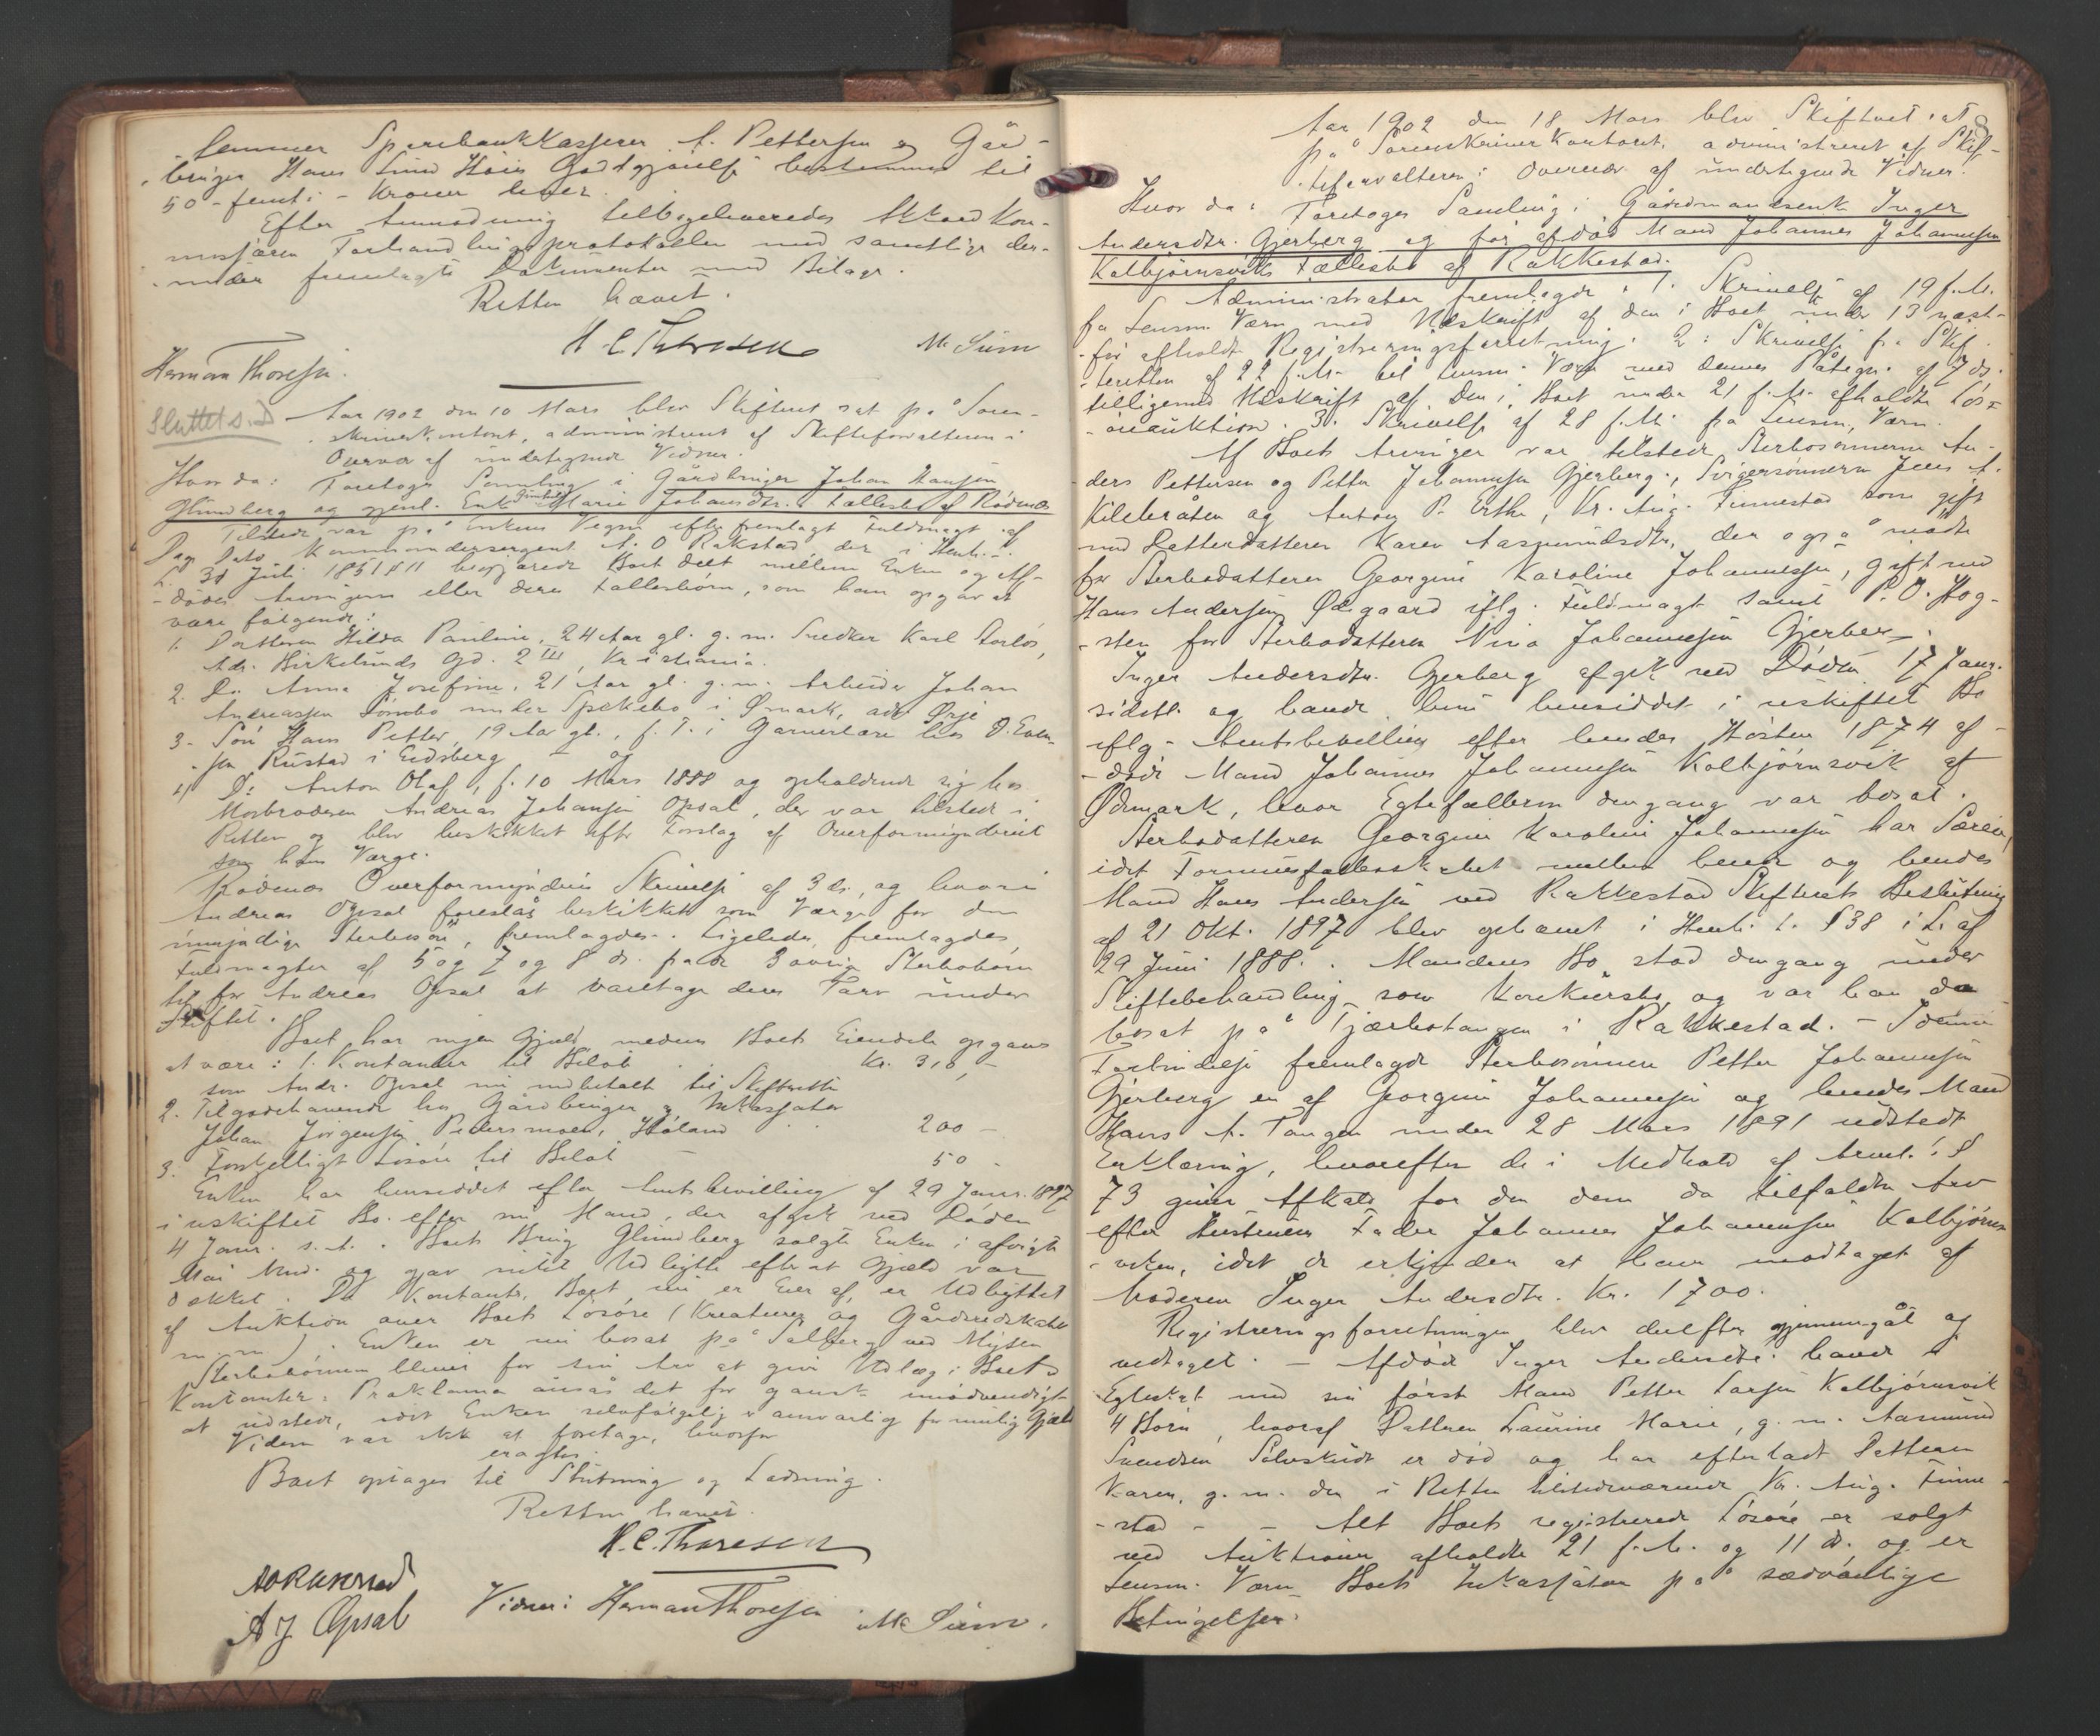 - lemmer Sparebankkasserer A. Pettersen og Gård-
- bruger Hans Lund Høies Godtgjørelse bestemmes til
50 - femti - Kroner hver.
Efter Anmodning tilbageleveredes Akkordkom-
missæren Forhandlingsprotokollen med samtlige der-
- under fremlagte Dokumenter med Bilage.
Retten hævet.
H. C. Thoresen M. Sum
Herman Thoresen.
Sluttet s. D
Aar 1902 den 10 Mars blev Skifteret sat på Soren-
skriverkontoret, administreret af Skifteforvalteren i
Overvær af undertegnede Vidner.
Hvor da: Foretoges Samling i Gårdbruger Johan Hansen
Glimberg og gjenl. Enke Marie Johansdtr.s Fællesbo af Rødenæs
Tilstede var på Enkens Vegne efter fremlagt Fuldmagt af
Dags Dato Kommandersergent A. O Rakstad, der i Henh. t.
L. 31 Juli 1851 § 11 begjærede Boet delt mellem Enken og Af-
- dødes Arvinger eller deres Fællesbørn, som han opgav at
være følgende:
1. Datteren Hilda Pauline, 24 Aar gl. g. m. Snedker Karl
Adr. Birkelunds Gd. 2 III, Kristiania.
2. Do Anna Josefine, 21 Aar gl. g. m. Arbeider Johan
Andreassen Sømbo under Spekebo i Ømark, adr Ørje
3. Søn Hans Petter, 19 Aar gl., f. T. i Garverlære hos O. Even-
- sen Rustad i Eidsberg - og
4) Do Anton Olaf, f. 10 Mars 1888 og opholdende sig hos
Morbroderen Andreas Johansen Opsal, der var tilstede i
Retten og blev beskikket efter Forslag af Overformynderiet
som hans Værge.
Rødenæs Overformynderis Skrivelse af 3 ds., og hvori
Andreas Opsal foreslåes beskikket som Værge for den
umyndige Sterbosøn, fremlagdes. Ligeledes fremlagdes
Fuldmagter af 5 og 7 og 8 ds. fra de 3 øvrige Sterbobørn
til for Andreas Opsal at varetage deres Tarv under
Skiftet.
Boet har ingen Gjæld medens Boets Eiendele opgaves
at være: 1. Kontanter til Beløb Kr. 310, -
som Andr. Opsal nu indbetalte til Skifteretten
2. Tilgodehavende hos Gårdbruger & Inkassator
Johan Jørgensen Pedersmoen, Høland 200 -
3. Forskjelligt Løsøre til Beløb - 50 -
Enken har hensiddet efter Amtsbevilling af 29 Janr. 1897
i uskiftet Bo efter sin Mand, der afgik ved Døden
4 Janr. s. A. Boets Brug Glimberg solgte Enken i afvigte
Mai Mnd. og gav intet Udbytte efterat Gjæld var
dækket. De Kontanter, Boet nu er Eier af, er Udbyttet
af Auktion over Boets Løsøre (Kreaturer og Gårdsredskaber
m. m.). Enken er nu bosat på Salberg ved Mysen
Sterbobørnene blever for sin Arv at give Udlæg i Boets
Kontanter. Proklama ansåes det for ganske unødvendigt
at udstede, idet Enken selvfølgelig er ansvarlig for mulig Gjæld
Videre var ikke at foretage, hvorfor
eragtes:
Boet optages til Slutning og Lodning.
Retten hævet.
H. C. Thoresen
AORakstad
A J Opsal
Vidner: Herman Thoresen M. Sum.
8
Aar 1902 den 18 Mars blev Skifteret sat
på Sorenskriverkontoret, administreret af Skif-
- teforvalteren i Overvær af undertegnede Vidner.
Hvor da: Foretoges Samling i Gårdmandsenke Inger
Andersdtr. Gjerberg og før afdød Mand Johannes Johannesen
Kolbjørnsviks Fællesbo af Rakkestad.
Administrator fremlagde: 1. Skrivelse af 19 f. M.
fra Lensm. Værn med Udskrift af den i Boet under 13 næst-
- før afholdte Registreringsforretning. 2: Skrivelse fra Skif-
- teretten af 22 f. M. til Lensm. Værn med dennes Påtegn. af 7 ds.
tilligemed Udskrift af den i Boet under 21 f. M. afholdte Løs-
- øreauktion. 3. Skrivelse af 28 f. M. fra Lensm. Værn.
Af Boets Arvinger var tilstede Sterbosønnerne An-
- ders Pettersen og Petter Johannesen Gjerberg, Svigersønnerne Jens A.
Kilebråten og Anton P. Erthe, Kr. Aug. Finnestad som gift
med Datterdatteren Karen Aasmundsdtr., der også mødte
for Sterbodatteren Georgine Karoline Johannesen, gift med
Hans Andersen Ødegaard iflg. Fuldmagt samt P. O. Hog-
- sten for Sterbodatteren Nina Johannesen Gjerberg.
Inger Andersdtr. Gjerberg afgik ved Døden 17 Janr.
sidstl. og havde hun hensiddet i uskiftet Bo
iflg. Amtsbevilling efter hendes Høsten 1874 af-
- døde Mand Johannes Johannesen Kolbjørnsvik af
Ødmark, hvor Egtefællerne dengang var bosat.
Sterbodatteren Georgine Karoline Johannesen har Særeie,
idet Formuesfællesskabet mellem hende og hendes
Mand Hans Andersen ved Rakkestad Skifterets Beslutning
af 21 Okt. 1897 blev ophævet i Henh. t. § 38 i L. af
29 Juni 1888. Mandens Bo stod dengang under
Skiftebehandling som Konkursbo, og var han da
bosat på Tjærbotangen i Rakkestad. - I denne
Forbindelse fremlagde Sterbosønnen Petter Johannesen
Gjerberg en af Georgine Johannesen og hendes Mand
Hans A. Tangen under 28 Mars 1891 udstedt
Erklæring, hvorefter de i Medhold af Arvel.s §
73 giver Afkald for den dem da tilfaldte Arv
efter Hustruens Fader Johannes Johannesen Kolbjørns-
- viken, idet de erkjender at have modtaget af
Moderen Inger Andersdtr. Kr. 1700.
Registreringsforretningen blev derefter gjennemgåt og
vedtaget. - Afdøde Inger Andersdtr. havde i
Egteskab med sin første Mand Petter Larsen Kolbjørnsvik
4 Børn, hvoraf Datteren Laurine Marie, g. m. Aasmund
Svendsen Sølvskudt er død og har efterladt Datteren
Karen, g. m. den i Retten tilstedeværende Kr. Aug. Finne-
- stad - - Alt Boets registrerede Løsøre er solgt
ved Auktioner afholdte 21 f. M. og 11 ds. og er
Lensm. Værn Boets Inkassator på sædvanlige
Betingelser.